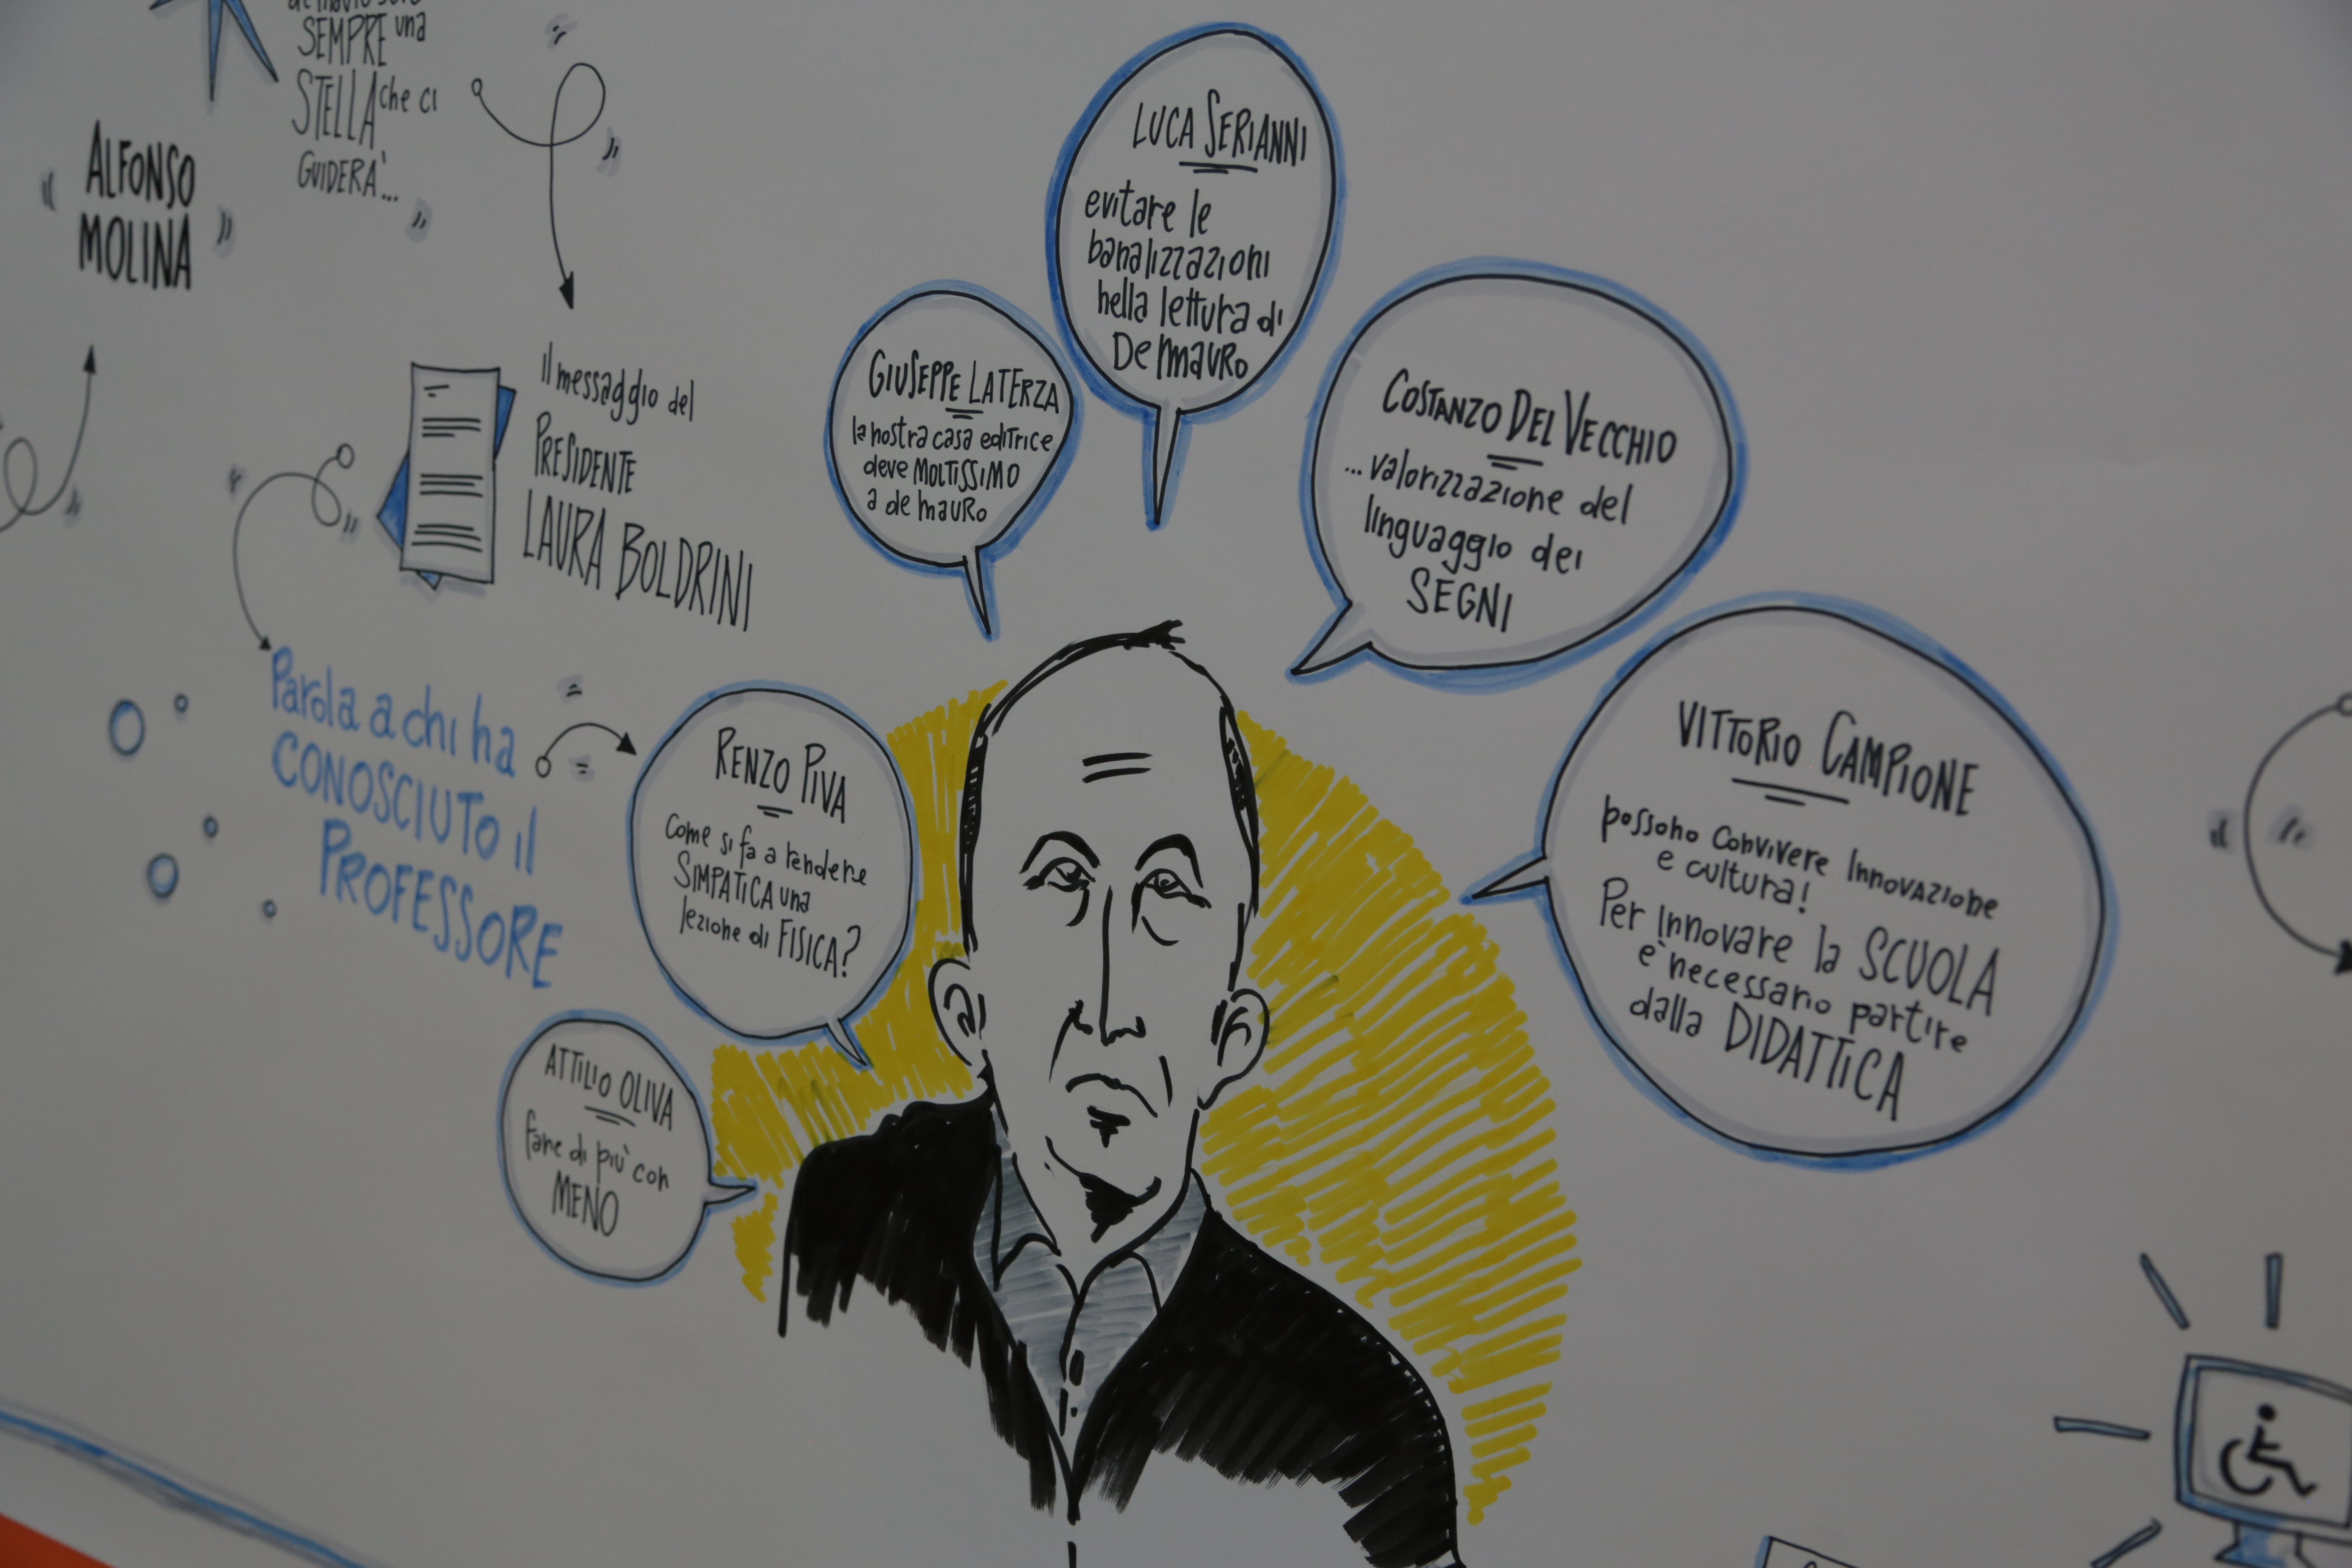 SEMPRE una
STELLA che ci
GUIDERÀ...
ALFONSO
MOLINA
Il messaggio del
PRESIDENTE
LAURA BOLDRINI
Parola a chi ha
CONOSCIUTO il
PROFESSORE
ATTILIO OLIVA
fare di più con
MENO
RENZO PIVA
Come si fa a rendere
SIMPATICA una
lezione di FISICA?
GIUSEPPE LATERZA
la nostra casa editrice
deve MOLTISSIMO
a de mauro
LUCA SERIANNI
evitare le
banalizzazioni
nella lettura di
De mauro
COSTANZO DEL VECCHIO
...valorizzazione del
linguaggio dei
SEGNI
VITTORIO CAMPIONE
possono convivere Innovazione
e cultura!
Per innovare la SCUOLA
è necessario partire
dalla DIDATTICA